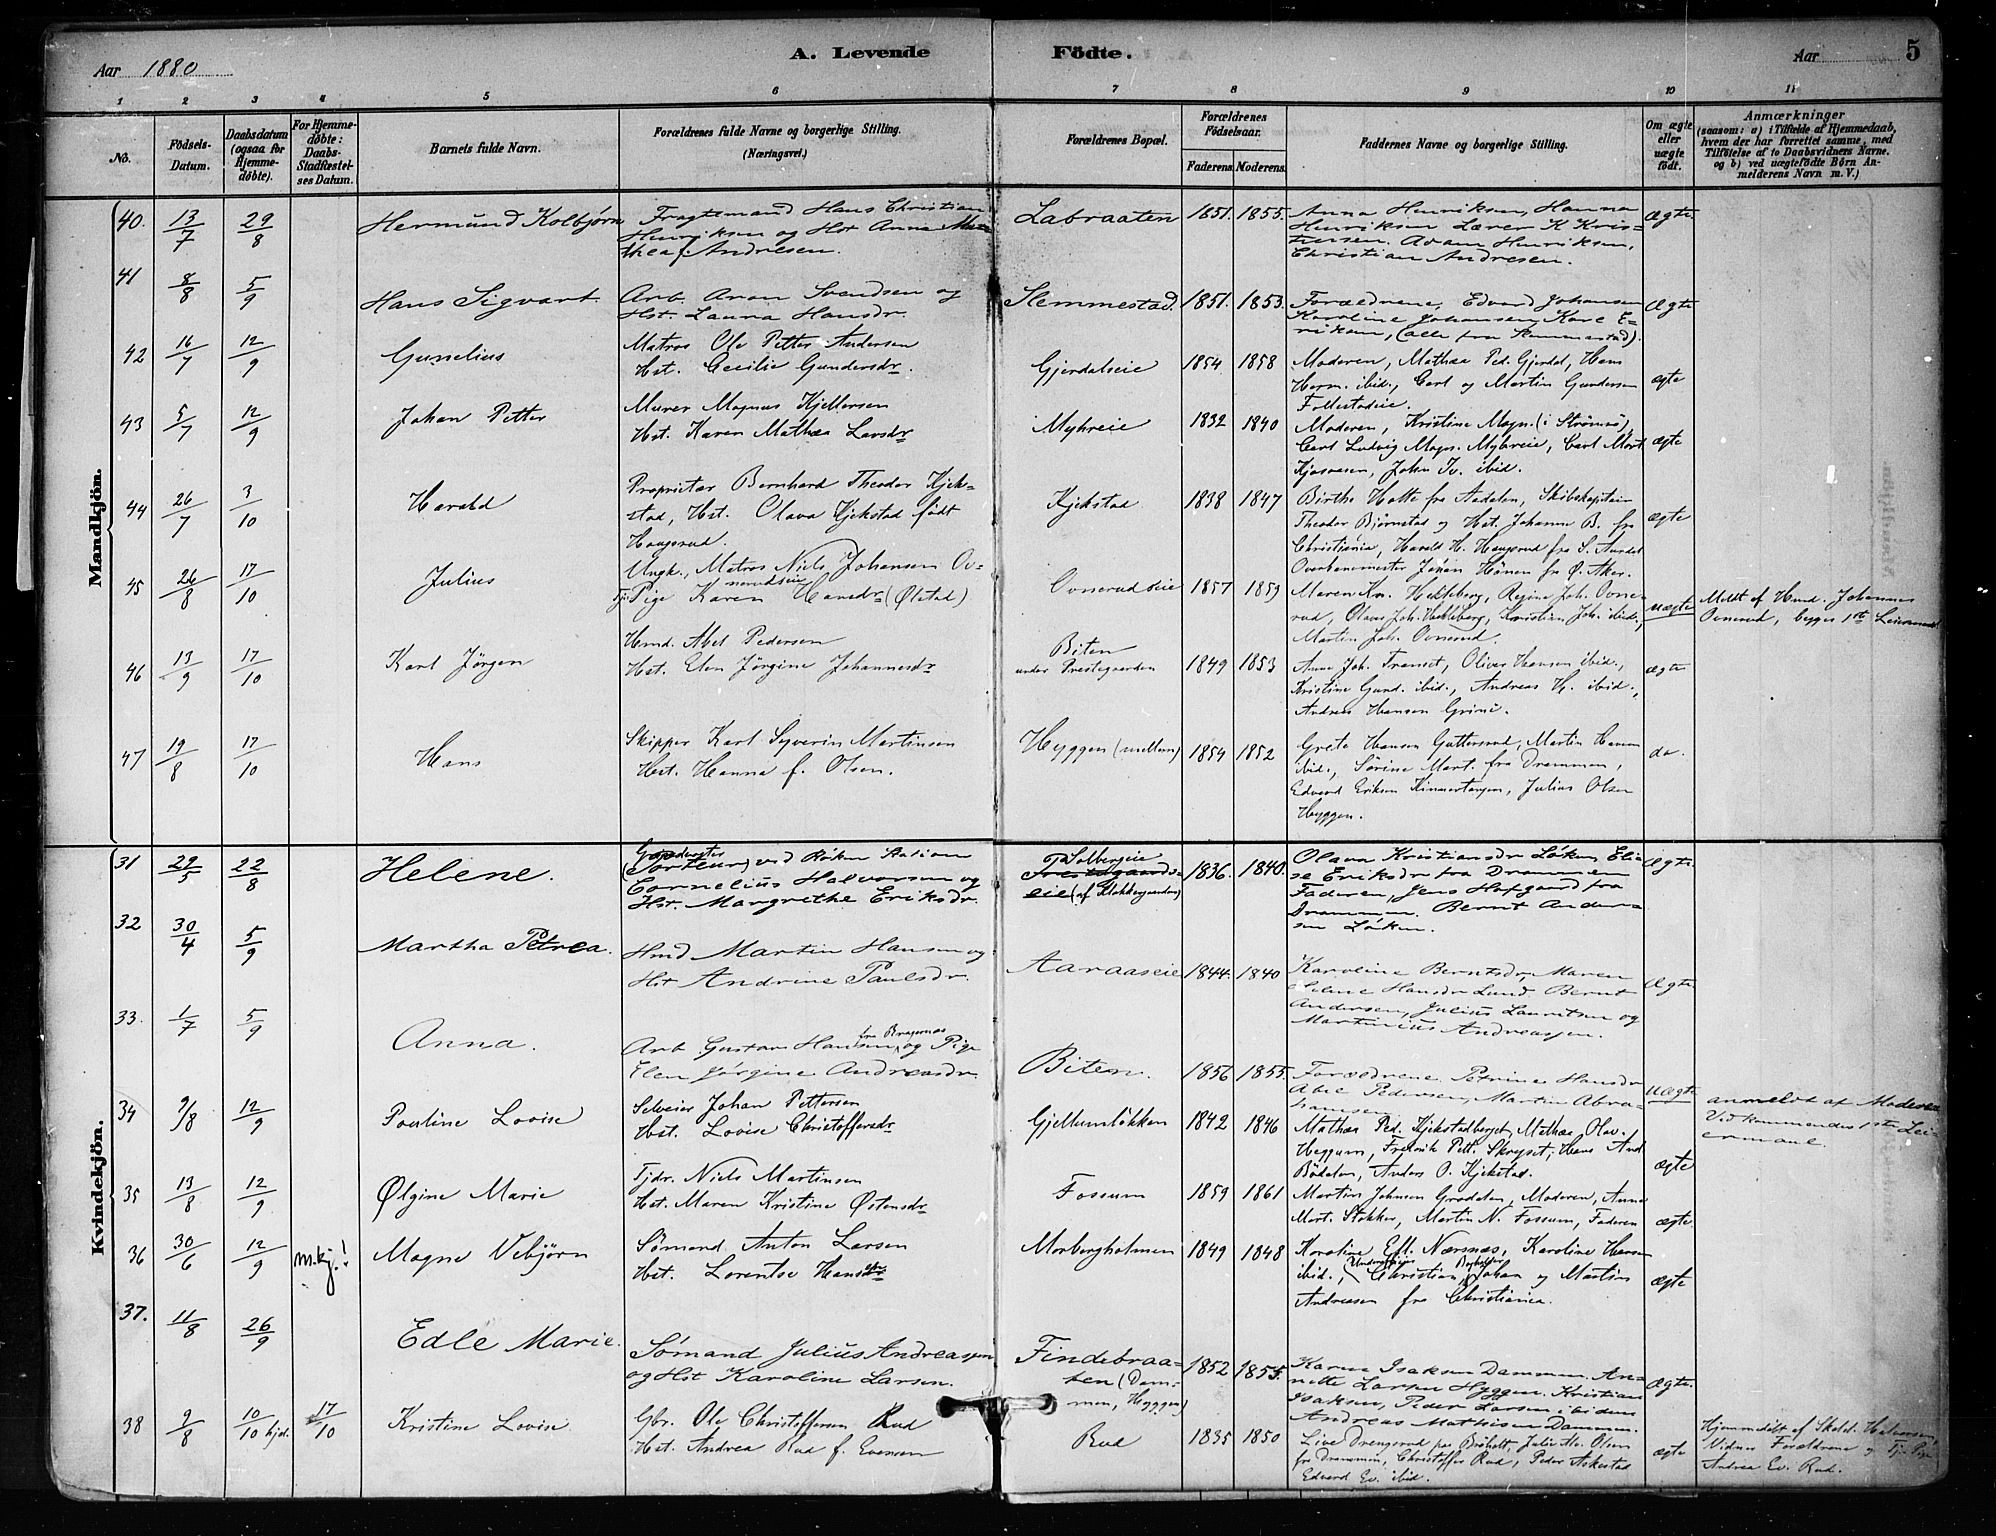 Aar 1880
A. Levende Födte.
Aar
5
1 2 3 4 5 6 7 8 9 10 11
No.
Födsels-Datum.
Daabsdatum (ogsaa for Hjemme-døbte).
For Hjemme-døbte: Daabs-Stadfæstel-ses Datum.
Barnets fulde Navn.
Forældrenes fulde Navne og borgerlige Stilling.
(Næringsvei.)
Forældrenes Bopæl.
Forældrenes Födselsaar.
Faderens. Moderens.
Faddernes Navne og borgerlige Stilling.
Om ægte eller uægte født.
Anmærkninger
(saasom: a) i Tilfælde af Hjemmedaab,
hvem der har forrettet samme, med
Tilföielse af to Daabsvidners Navne.
og b) ved uægtefödte Börn An-
melderens Navn m. V.)
Mandkjön.
40. 13/7 29/8 Hermund Kolbjørn
Fragtemand Hans Christian
Henriksen og Hst Anne Ma-
thea f. Andresen.
Labraaten 1851. 1855.
Anna Henriksen, Hanna
Henriksen Lærer K Kris-
tiensen. Adam Henriksen,
Christian Andresen.
Ægte
41 8/8 5/9 Hans Sigvart
Arb. Aron Svendsen og
Hst. Laura Hansdr.
Slemmestad. 1851. 1853.
Forældrene, Edvard Johansen
Karoline Johansen, Karl E-
riksen, (alle fra Slemmestad).
Ægte
42 16/7 12/9 Gunelius
Matros Ole Petter Andersen
Hst. Cecilie Gundersdr.
Gjerdalseie 1854 1858
Moderen, Mathea Ped. Gjerdal, Hans
Herm. ibid., Carl og Martin Gundersen
Follestadeie.
ægte
43 5/7 12/9 Johan Petter
Murer Magnus Kjellersen
Hst. Karen Mathea Larsdr
Myhreie 1832 1840
Moderen, Kristine Magn. (i Strømsø),
Carl Ludvig Magn. Myhreie, Carl Mort.
Kjosaasen, John Iv. ibid.
ægte
44 26/7 3/10 Harald
Proprietær Bernhard Theodor Kjek-
stad, Hst. Olava Kjekstad født
Haugsrud.
Kjekstad 1838 1847
Birthe Hotte fra Aadalen, Skibskaptein
Theodor Bjørnstad og Hst. Johanne B. fra
Christiania, Harald H. Haugsrud fra S. Aurdal
Overbanemester Johan Hönen fra Ø. Aker.
ægte
45 26/8 17/10 Julius
Ungk., Matros Niels Johansen Ov-
nerudseie
Tj. Pige Karen Hansdr (Ølstad)
Ovnerudseie 1857 1859
Maren Kr. Hekleberg, Regine Joh. Ovne-
rud, Olaus Joh. Hekleberg, Kristian Joh. ibid.,
Martin Joh. Ovnerud.
uægte
Meldt af Hmd. Johannes
Ovnerud, begges 1ste Leiermaal
46 13/9 17/10 Karl Jörgen
Hmd. Abel Pedersen
Hst. Elen Jörgine Johannesdr
Biten
under Prestegaarden 1849 1853
Anne Joh. Transet, Oliver Hansen ibid.,
Kristine Gund. ibid., Andreas H. ibid.,
Andreas Hansen Grini.
ægte
47 19/8 17/10 Hans
Skipper Karl Syverin Martinsen
Hst. Hanna f. Olsen.
Hyggen (mellem) 1854 1852
Grete Hansen Guttersrud, Martin Hansen
ibid., Sörine Mart. fra Drammen,
Edvard Eriksen Kinnertangen, Julius Olsen
Hyggen.
do.
Kvindekjön.
31 29/5 22/8 Helene.
(Porteur) ved Röken Station
Cornelius Halvorsen og
Hst. Margrethe Eriksdr.
Solbergeie
eie (af Klokkergaarden) 1836. 1840.
Olava Kristiansdr Løken, Eli-
se Eriksdr fra Drammen
Faderen, Jens Hofgaard fra
Drammen. Bernt Ander-
sen Løken.
Ægte
32 30/4 5/9 Martha Petrea.
Hmd Martin Hansen og
Hst Andrine Paulsdr.
Aaraaseie 1844. 1840
Karoline Berntsdr, Maren
Helene Hansdr Lund Bernt
Andersen, Julius Lauritsen og
Martinius Andreassen.
Ægte
33. 1/7 5/9 Anna.
fra Bragernes
Arb. Gustav Hansen, og Pige
Elen Jørgine Andreasdr.
Biten. 1856 1855.
Forældrene Petrine Hansdr
Abel Pedersen, Martin Abra-
hamsen
Uægte
anmeldt af Moderen
Vedkommendes 1ste Lei-
ermaal
34 9/8 12/9 Pauline Lovise
Selveier Johan Pettersen
Hst. Lovise Christoffersdr
Gjellumløkken 1842 1846
Mathea Ped. Kjekstadberget, Mathea Olav.
Heggum, Fredrik Pett. Skryset, Hans And
Bödalen, Anders O. Kjekstad.
ægte
35 13/8 12/9 Ølgine Marie
Tjdr. Niels Martinsen
Hst. Maren Kristine Østensdr
Fossum 1859 1861
Martin Johnsen Grodalen, Moderen, Anne
Mort. Stokker, Martin N. Fossum, Faderen
ægte
36 30/6 12/9 m.kj.! Magne Vebjørn
Sømand Anton Larsen
Hst. Lorentse Hansdr
Morbergholmen 1849 1848
Karoline Eft. Nærsnæs, Karoline Hansen
ibid., Christian, Johan og Martin
Andreasen fra Christiania.
ægte
37. 11/8 26/9 Edle Marie.
Sømand Julius Andreassen
og Hst Karoline Larsen.
Findebraa-
ten (Dam-
men, Hyggen) 1852 1855.
Karen Isaksen Dammen. An-
nette Larsen Hyggen. Kristian
Isaksen, Peder Larsen ibidem
Andreas Mathisen Dammen.
Ægte
38 9/8 10/10 hjd. 17/10 Kristine Lovise
Gbr. Ole Christoffersen Rud
Hst. Andrea Rud f. Evensen
Rud 1835 1850
Live Drengsrud fra Bröholt, Julie Olsen
fra Drammen, Christoffer Rud, Peder Askestad
Edvard Ev. ibid.
ægte
Hjemmedöbt af Skolel. Halvorsen,
Vidner Forældrene og Tj. Pige
Andrea Ev. Rud.